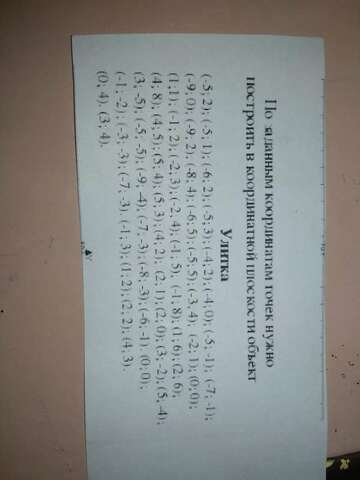 По заданным координатам точек нужно
построить в координатной плоскости объект
Улитка
(-5; 2); (-5; 1); (-6; 2); (-5; 3); (-4; 2); (-4; 0); (-5; -1); (-7; -1);
(-9; 0); (-9; 2); (-8; 4); (-6; 5); (-5; 5); (-3; 4), (-2; 1); (0; 0);
(1; 1); (-1; 2); (-2; 3); (-2; 4); (-1; 5), (-1; 8); (1; 6); (2; 6);
(4; 8); (4; 5); (5; 4); (5; 3); (4; 2); (2; 1); (2; 0); (3; -2); (5; -4);
(3; -5); (-5; -5); (-9; -4); (-7; -3); (-8; -3); (-6; -1), (0; 0);
(-1; -2); (-3; -3); (-7; -3). (-1; 3); (1; 2); (2; 2); (4; 3).
(0; 4), (3; 4).